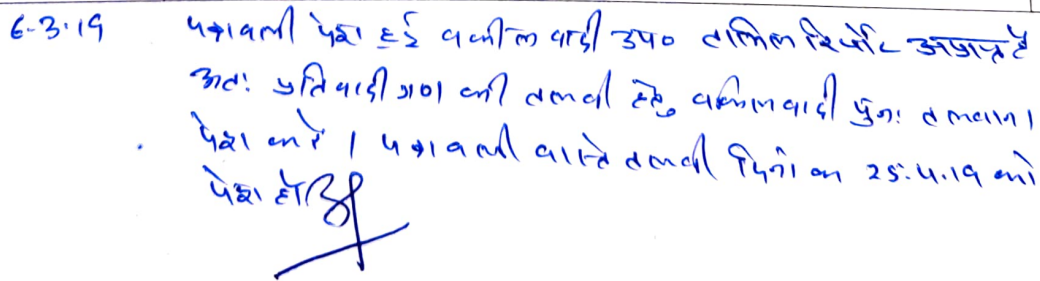 6-3-19 पत्रावली पेश हुई वकील वादी उप० तामिल रिपोर्ट अप्राप्त है
अतः प्रतिवादी गण की तलवी हेतु वकिलवादी पुनः तलवाना
पेश करे। पत्रावली वास्ते तलवी दिनांक 25.4.19 को
पेश हो